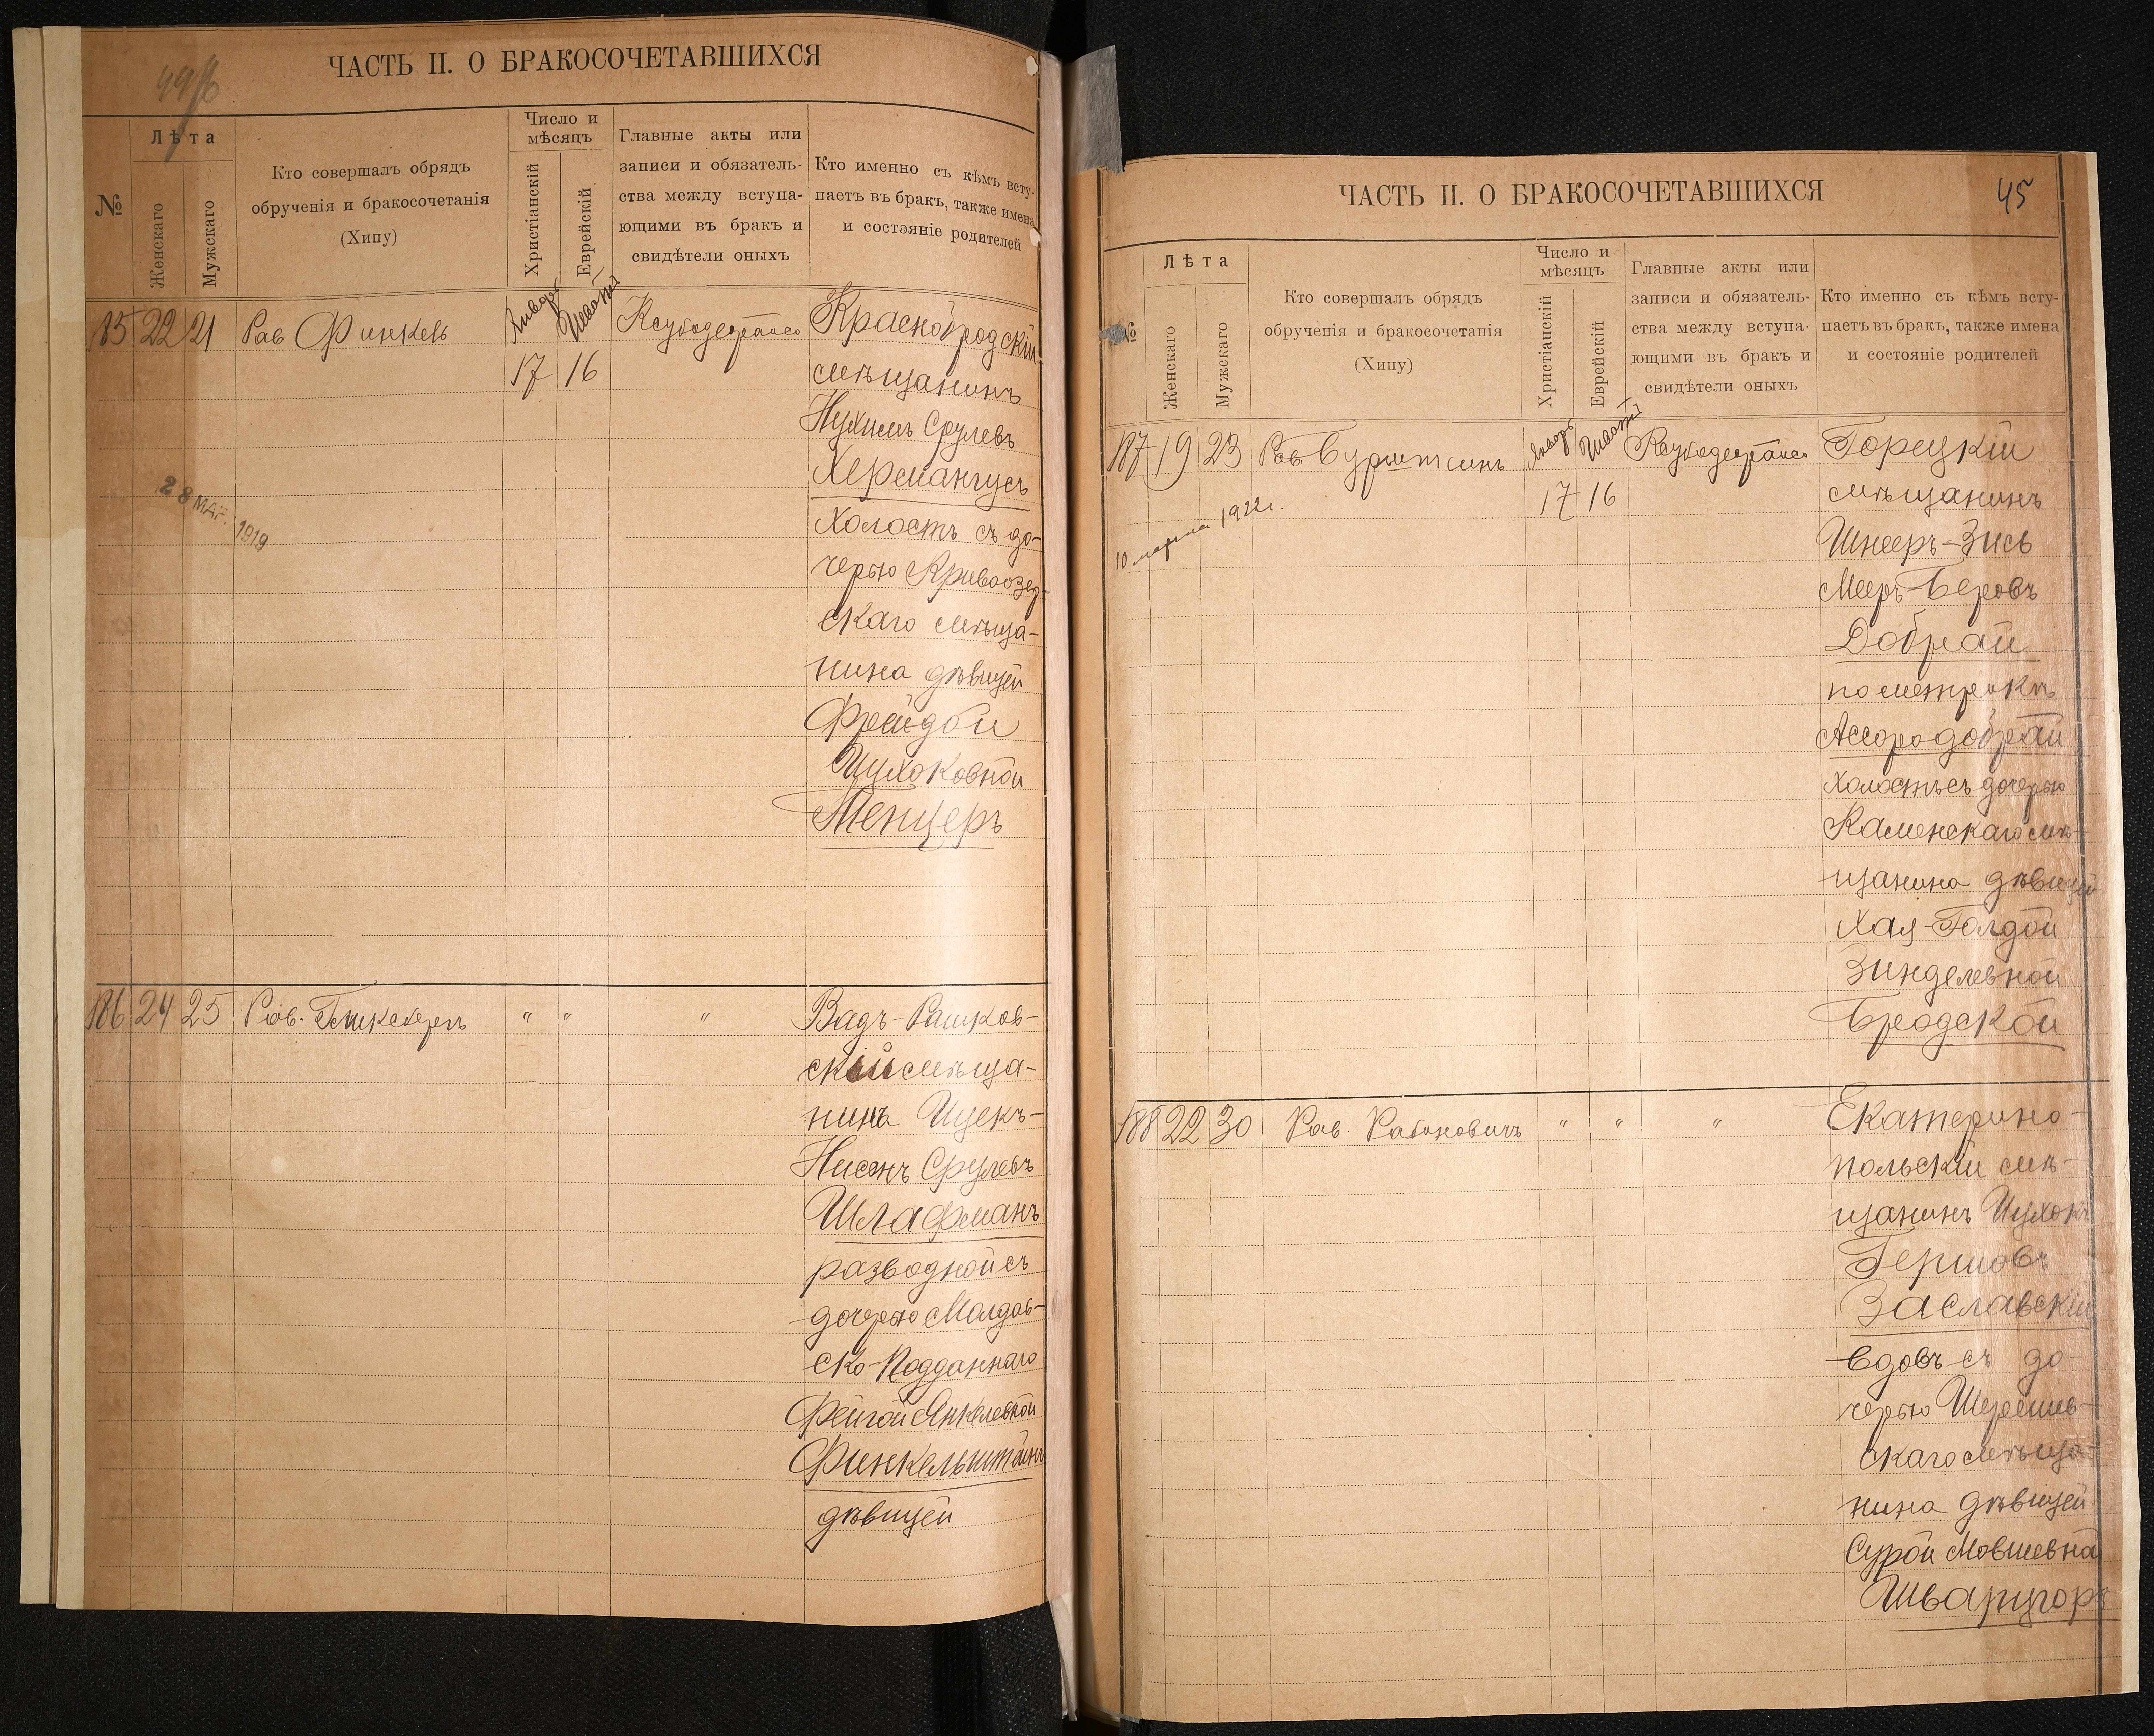 ЧАСТЬ II. О БРАКОСОЧЕТАВШИХСЯ
№
Лѣта
Женскаго
Мужскаго
Кто совершалъ обрядъ
обрученія и бракосочетанія
(Хипу)
Число и
мѣсяцъ
Христіанскій
Еврейскій
Главные акты или
записи и обязатель-
ства между вступа-
ющими въ бракъ и
свидѣтели оныхъ
Кто именно съ кѣмъ всту-
паетъ въ бракъ, также имена
и состояніе родителей
185 22 21 Рав Финкель
Январь
17 16
28 МАР. 1919
мѣщанинъ
Нухимъ Срулевъ
Хермангусъ
холостъ съ до-
черью Кривоозер-
скаго мѣща-
нина дѣвицей
Фрейдой
Ицхоковной
Менцеръ
186 24 25 Рав. " " "
Вадъ-Рашков-
скій мѣща-
нинъ Ицекъ-
Нисонъ Срулевъ
Шлафманъ
разводной съ
дочерью Молдав-
ско-Подданнаго
Фейгой Янкелевной
Финкельштейнъ
дѣвицей
ЧАСТЬ II. О БРАКОСОЧЕТАВШИХСЯ
45
№
Лѣта
Женскаго
Мужскаго
Кто совершалъ обрядъ
обрученія и бракосочетанія
(Хипу)
Число и
мѣсяцъ
Христіанскій
Еврейскій
Главные акты или
записи и обязатель-
ства между вступа-
ющими въ бракъ и
свидѣтели оныхъ
Кто именно съ кѣмъ всту-
паетъ въ бракъ, также имена
и состояніе родителей
187 19 23 Рав
Январь
17 16
10 марта 1922г.
Горецкій
мѣщанинъ
Шнееръ-Зись
Мееръ-Беровъ
Добрай
по метрикѣ
холостъ съ дочерью
Каменскаго мѣ-
щанина дѣвицей
Хая-Голдой
Зинделевной
Бродской
188 22 30 Рав. Рабиновичъ " " "
Екатерино-
польскій мѣ-
щанинъ Ицхокъ
Гершовъ
Заславскій
вдовъ съ до-
черью Шерешев-
скаго мѣща-
нина дѣвицей
Сурой Мовшевной
Шварцгоръ